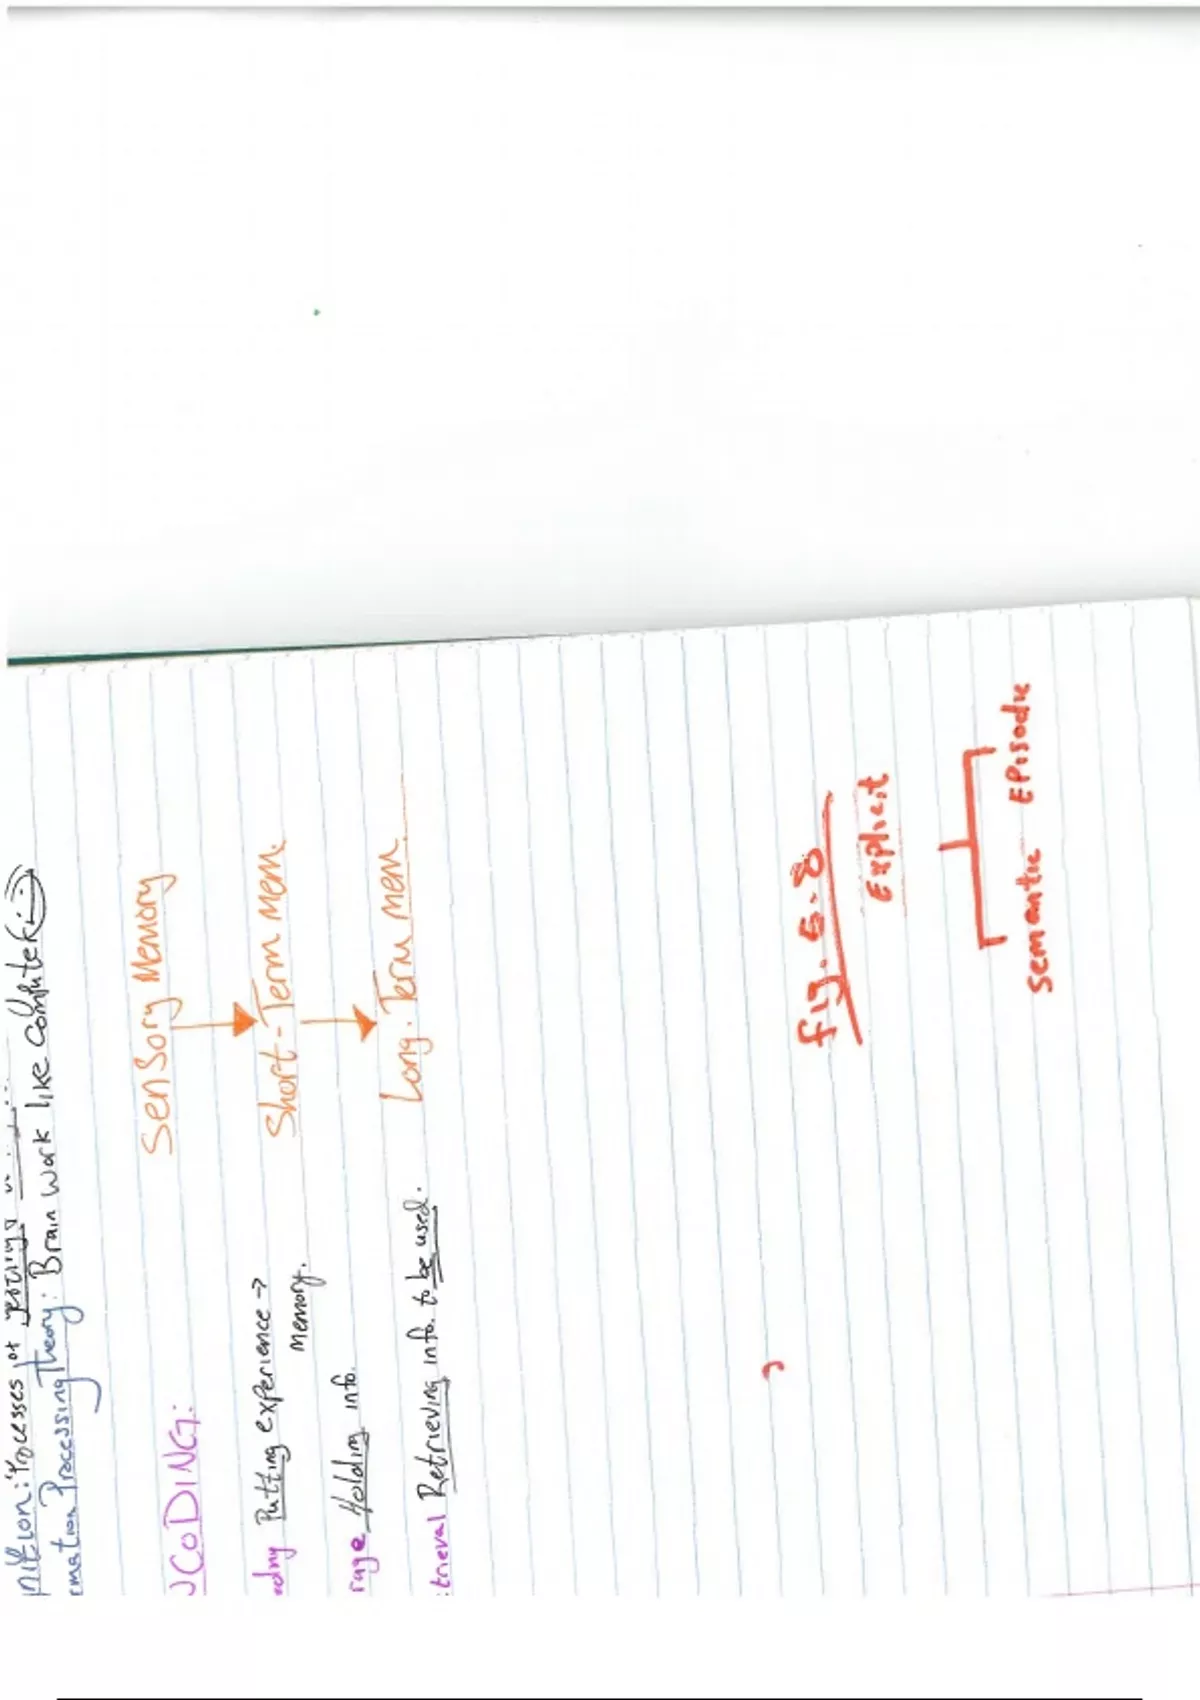 nition: Processes of
rmation Processing Theory: Brain work like computer
CODING:
Sensory Memory
Putting experience →
memory.
Short-Term mem.
rage Holding info.
trieval Retrieving info. to be used.
Long. Term mem.
fig. 6.8
Explicit
Semantic Episodic